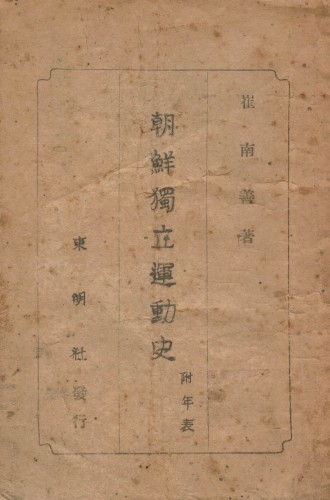 崔南善著
朝鮮獨立運動史
附年表
東明社發行